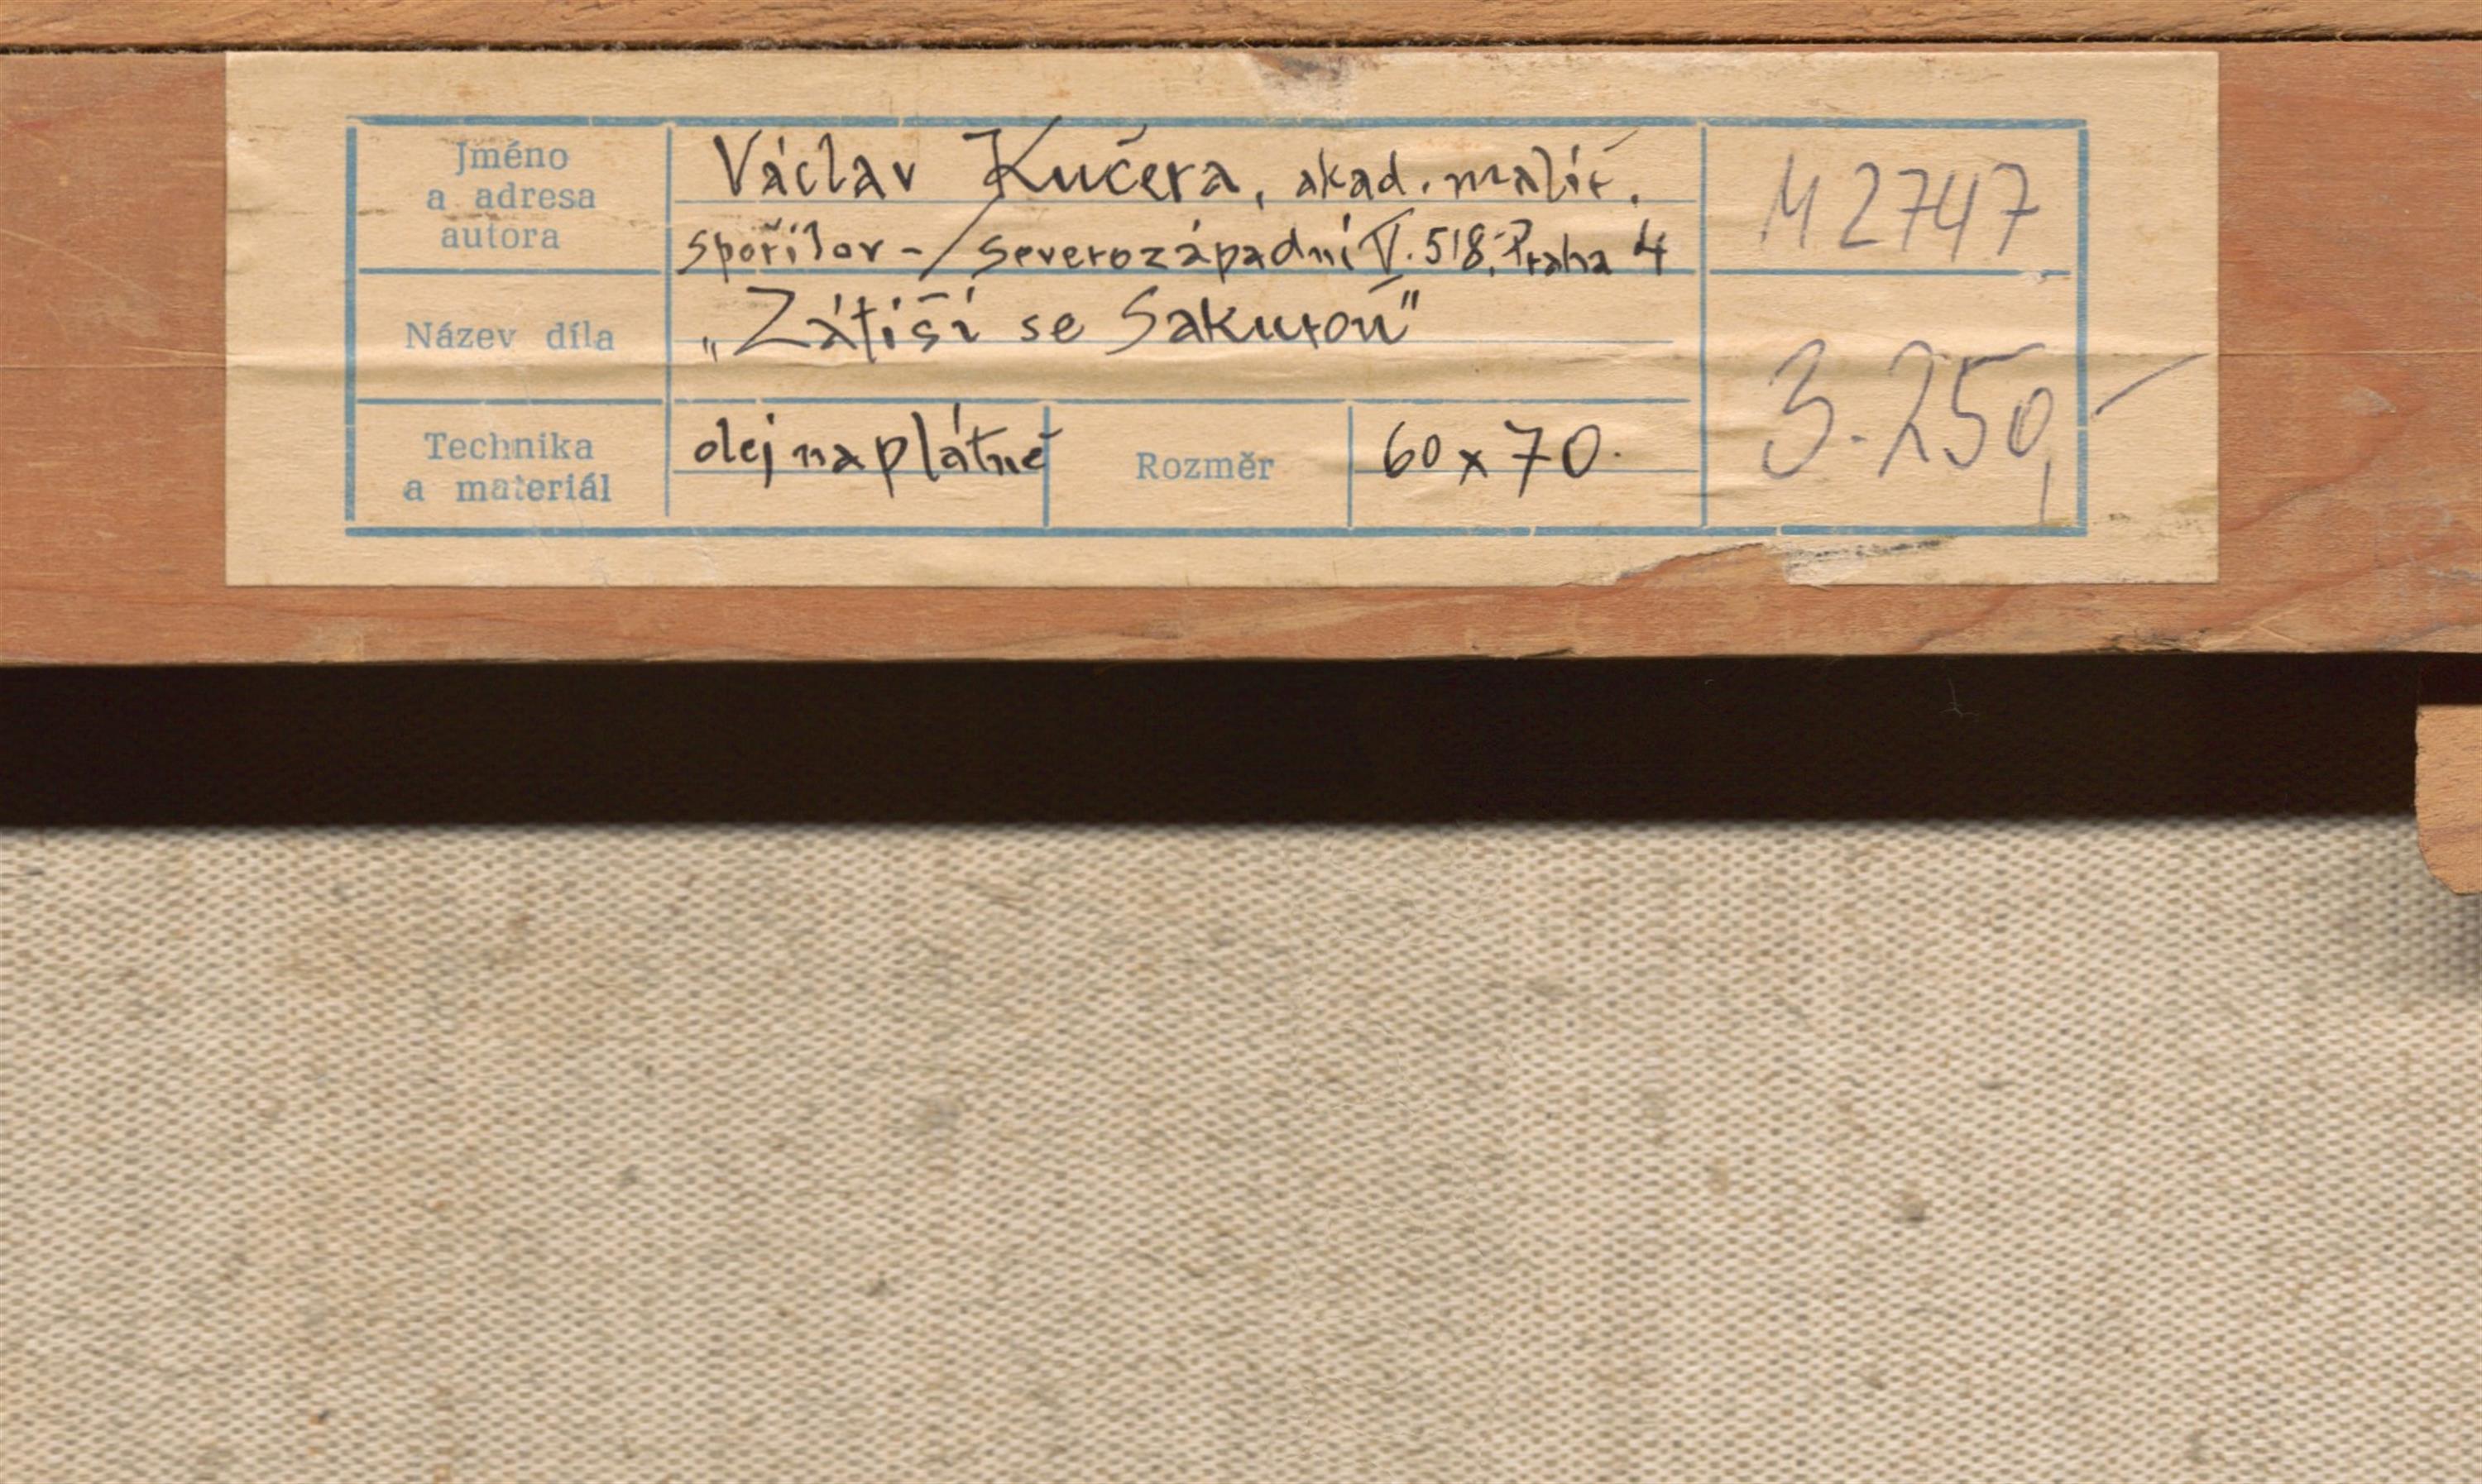 Jméno
a adresa
autora
Václav Kučera, akad. malíř.
Spořilov - Severozápadní V. 518, Praha 4
M 2747
Název díla
„Zátiší se Sakurou"
3.250,-
Technika
a materiál
olej na plátně
Rozměr
60 x 70.